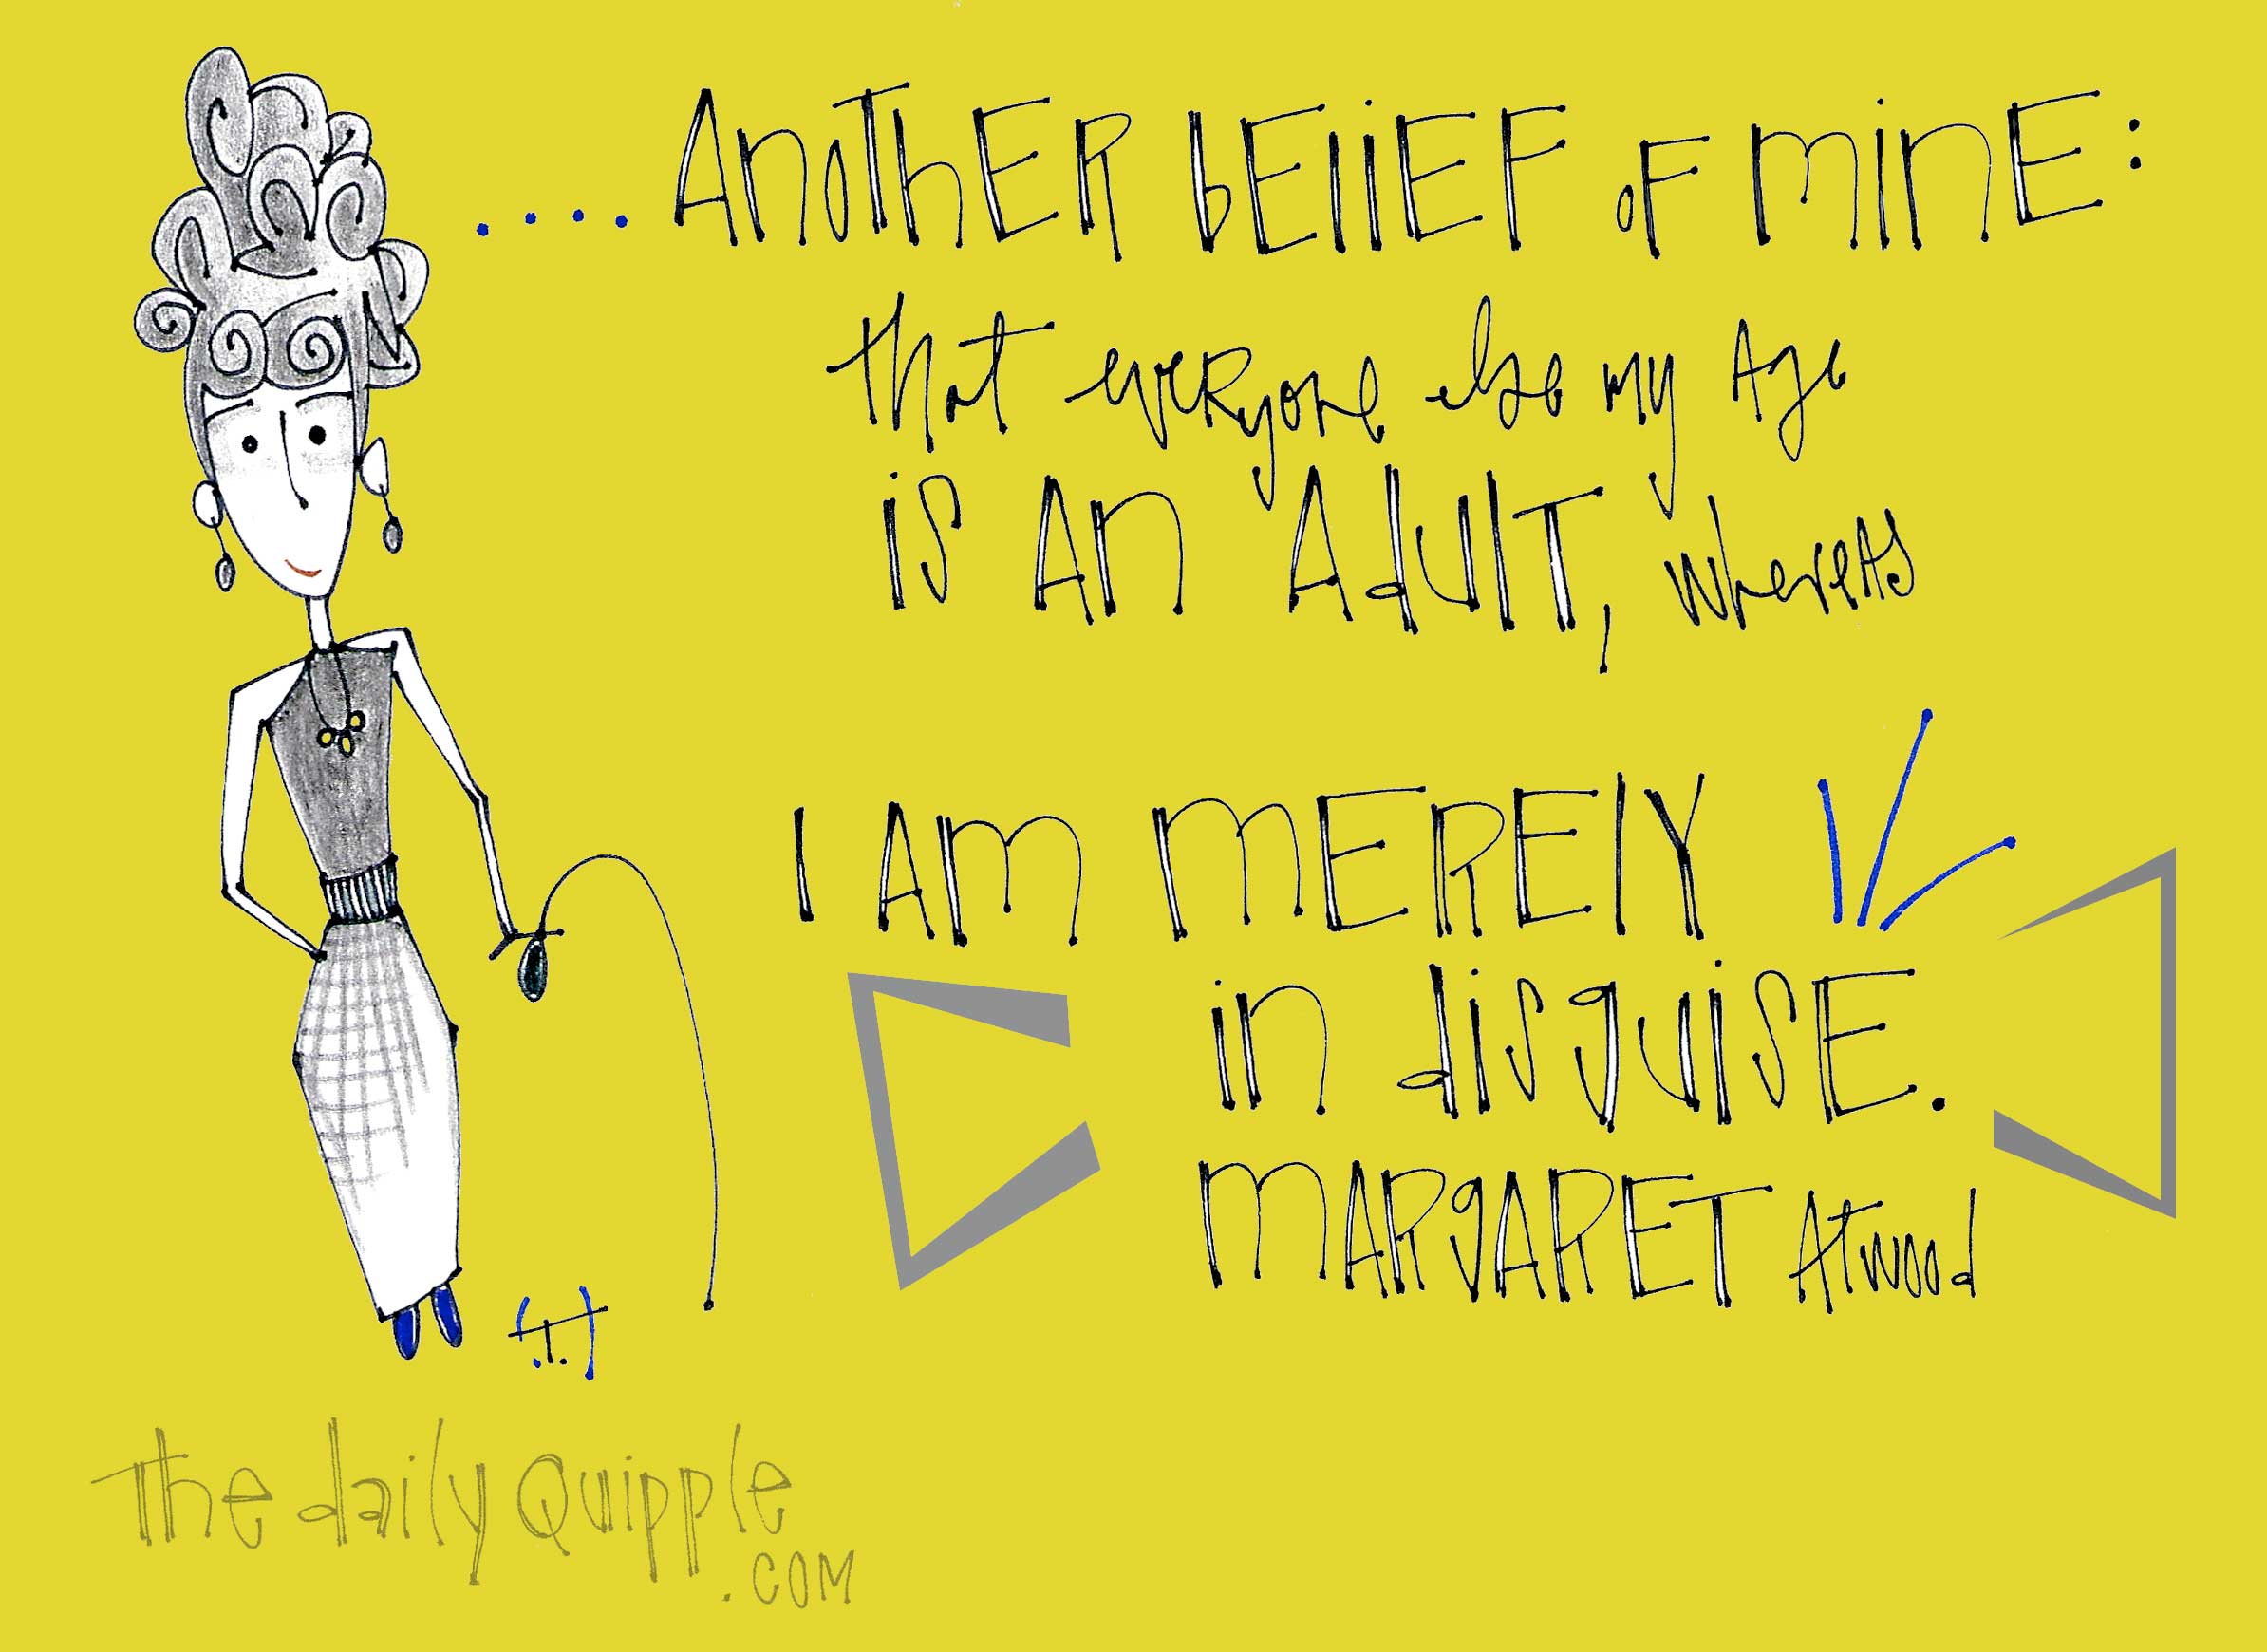 ....Another belief of mine:
that everyone else my age
is an adult, whereas
I am merely
in disguise.
Margaret Atwood
(T.)
The daily Quipple
.com